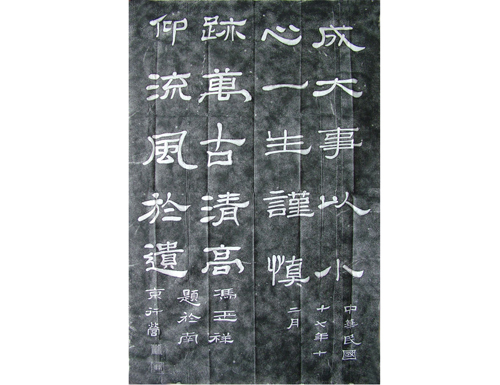 成大事以小
心一生謹慎
中華民國
十七年十
二月
仰流風於遺
跡萬古清高
馮玉祥
題於南
京行營